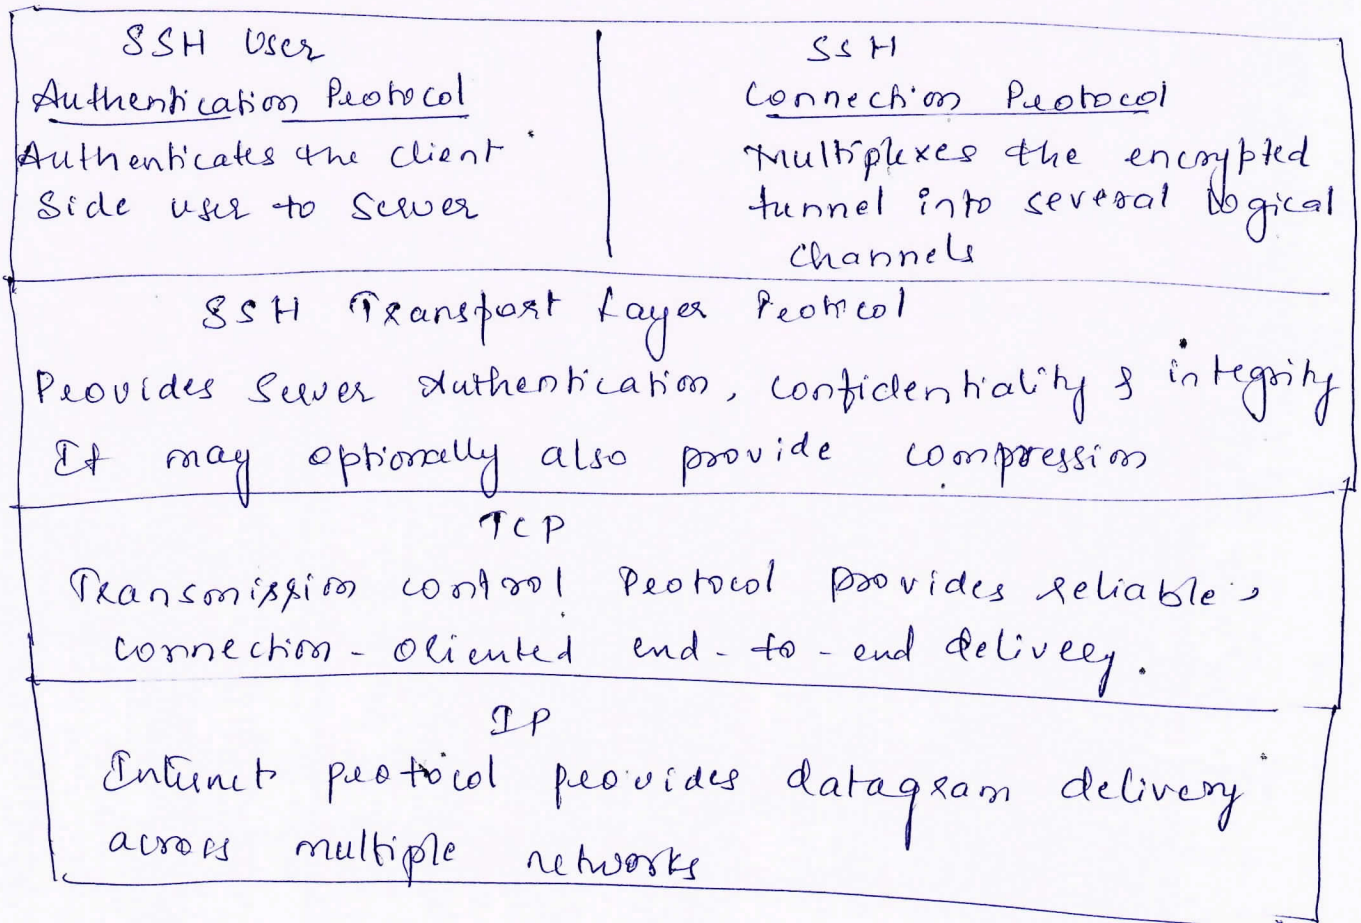 SSH User
Authentication Protocol
Authenticates the client
Side user to Server
SSH
Connection Protocol
Multiplexes the encrypted
tunnel into several logical
channels
SSH Transport Layer Protocol
Provides Server Authentication, confidentiality & integrity
It may optionally also provide compression
TCP
Transmission control Protocol provides reliable,
connection-oriented end-to-end delivery.
IP
Internet protocol provides datagram delivery
across multiple networks